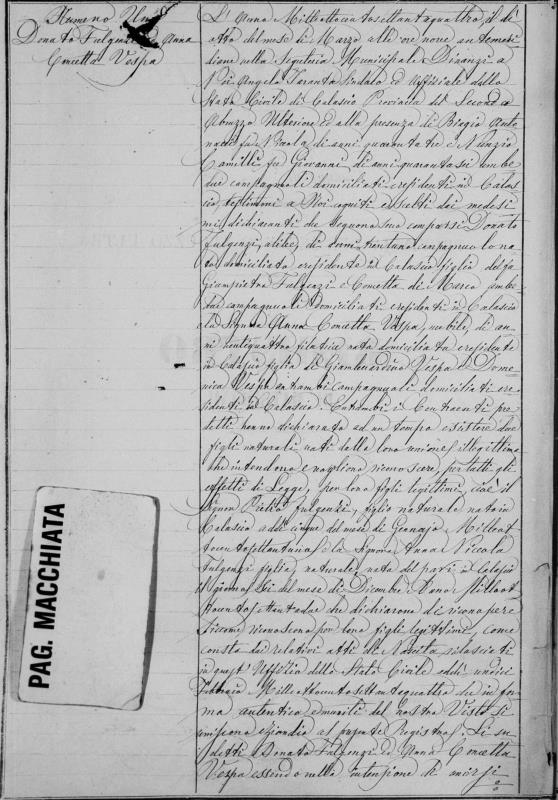 Numero Uno
Donato Fulgenzi Anna
Concetta Vespa
L'Anno Milleottocentosettantaquattro, il di
otto del mese di Marzo alle ore nove antemeri
diane nella Segreteria Municipale Dinanzi a
Noi Angelo Taranta Sindaco ed Uffiziale dello
Stato Civile di Calascio Provincia del Secondo
Abruzzo Ulteriore ed alla presenza di Biagio Anto
nacci fu Nicola di anni quarantatre e Nunzio
Camilli fu Giovanni di anni quarantasei ambe
due campagnuoli domiciliati e residenti in Calas
cio, testimoni a Noi cogniti e scelti dai medesi
mi dichiaranti che seguono, sono comparsi Donato
Fulgenzi, celibe, di anni trentuno campagnuolo na
to domiciliato e residente in Calascio figlio del fu
Giampietro Fulgenzi e Concetta di Marco ambe
due campagnuoli domiciliati e residenti in Calascio
e la Signora Anna Concetta Vespa, nubile, di an
ni ventiquattro filatrice nata domiciliata e residente
in Calascio figlia di Giambernardino Vespa e Dome
nica Vespa entrambi campagnuoli domiciliati e re
sidenti in Calascio. Entrambi i Contraenti pre
detti hanno dichiarato ad un tempo esistere due
figli naturali nati dalla loro unione illegittima
che intendono e vogliono riconoscere, per tutti gli
effetti di Legge, per loro figli legittimi, cioè il
Signor Pietro Fulgenzi, figlio naturale nato in
Calascio addi cinque del mese di Gennajo Milleot
tocentosettantuno, e la Signora Anna Nicola
Fulgenzi figlia naturale nata del pari in Calascio
il giorno sei del mese di Dicembre Anno Milleot
tocentosettantadue che dichiarono di riconoscere
siccome riconoscono per loro figli legittimi, come
consta dai relativi atti di Nascita rilasciati
in quest'Uffizio dello Stato Civile addi undici
Febbraio Milleottocentosettantaquattro che in for
ma autentica e muniti del nostro Visto si
inseriscono eziandio al presente Registro. Li su
detti Donato Fulgenzi ed Anna Concetta
Vespa essendo nella intenzione di unirsi
PAG. MACCHIATA